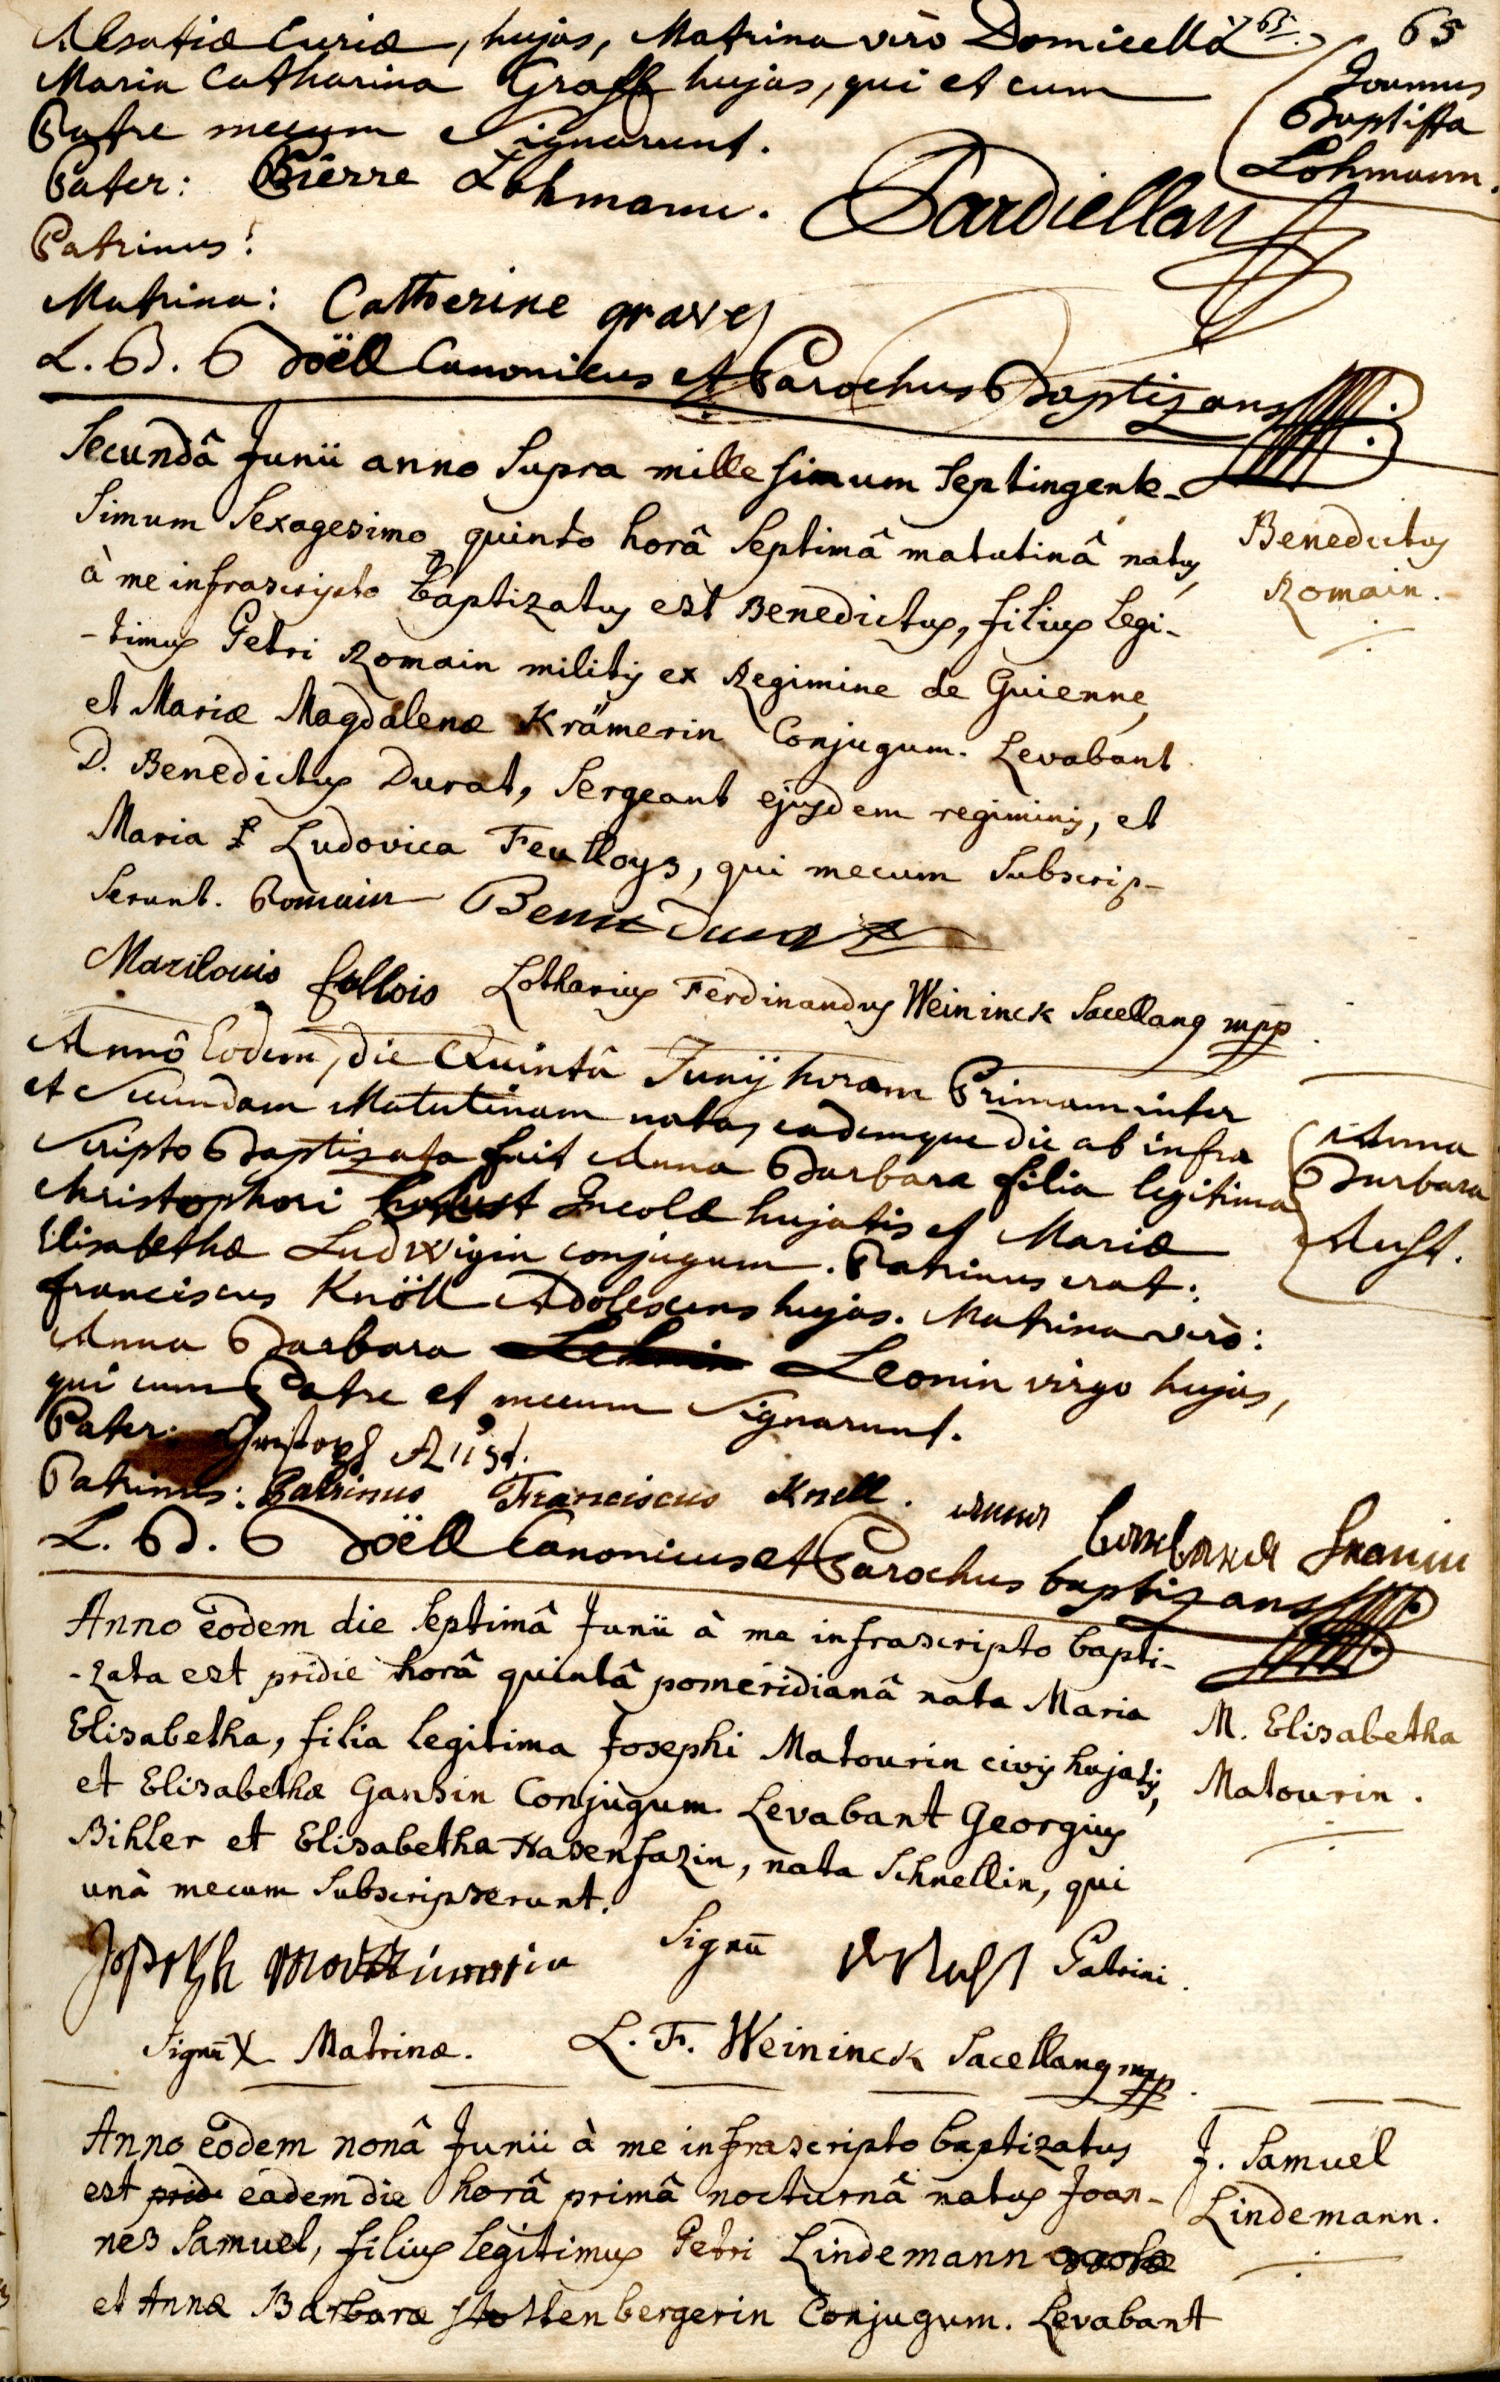 Alsatiæ Curiæ, hujas, Matrina verò Domicella 65. 65
Maria Catharina Graff hujas, qui et cum
Patre mecum signarunt.
Joannes
Baptista
Lohmann.
Pater: Pierre Lohmann.
Patrinus: Pardiellan
Matrina: Catherine grave
L. B. Boëll Canonicus et Parochus Baptizans
Secundâ Junii anno supra millesimum septingente-
simum sexagesimo quinto horâ septimâ matutinâ natus,
à me infrascripto baptizatus est Benedictus, filius legi-
-timus Petri Romain militis ex Regimine de Guienne,
et Mariæ Magdalenæ Krämerin Conjugum. Levabant
D. Benedictus Durat, sergeant ejusdem regiminis, et
Maria Ludovica Feulloys, qui mecum subscrip-
serunt. Romain Beni Durat
Benedictus
Romain.
Marilouis follois Lotharius Ferdinandus Weininck Sacellanus mpp
Annô Eodem, die Quintâ Junij horam Primam inter
et Secundam Matutinam nata, eademque die ab infra
scripto Baptizata fuit Anna Barbara filia legitima
christophori Incolæ hujatis et Mariæ
Elisabethæ Ludwigin conjugum. Patrinus erat:
franciscus Knöll Adolescens hujas. Matrina verò:
Anna Barbara Leonin virgo hujas,
qui cum Patre et mecum signarunt.
Anna
Barbara
Aust.
Pater: Christoph Aust.
Patrinus: Patrinus Franciscus Knell. anna barbara
L. B. Boëll Canonicus et Parochus baptizans
Anno eodem die septimâ Junii à me infrascripto bapti-
-zata est pridie horâ quintâ pomeridianâ nata Maria
Elisabetha, filia legitima Josephi Matourin civis hujatis,
et Elisabethæ Gansin Conjugum. Levabant Georgius
Bihler et Elisabetha Hasenfazin, nata Schnellin, qui
unà mecum subscripserunt.
M. Elisabetha
Matourin.
Joseph Signū Patrini.
Signū X Matrinæ. L. F. Weininck Sacellanus mpp
Anno eodem nonâ Junii à me infrascripto baptizatus
est prid eâdem die horâ primâ nocturnâ natus Joan-
nes Samuel, filius legitimus Petri Lindemann
et Annæ Barbaræ Stoltenbergerin Conjugum. Levabant
J. Samuel
Lindemann.